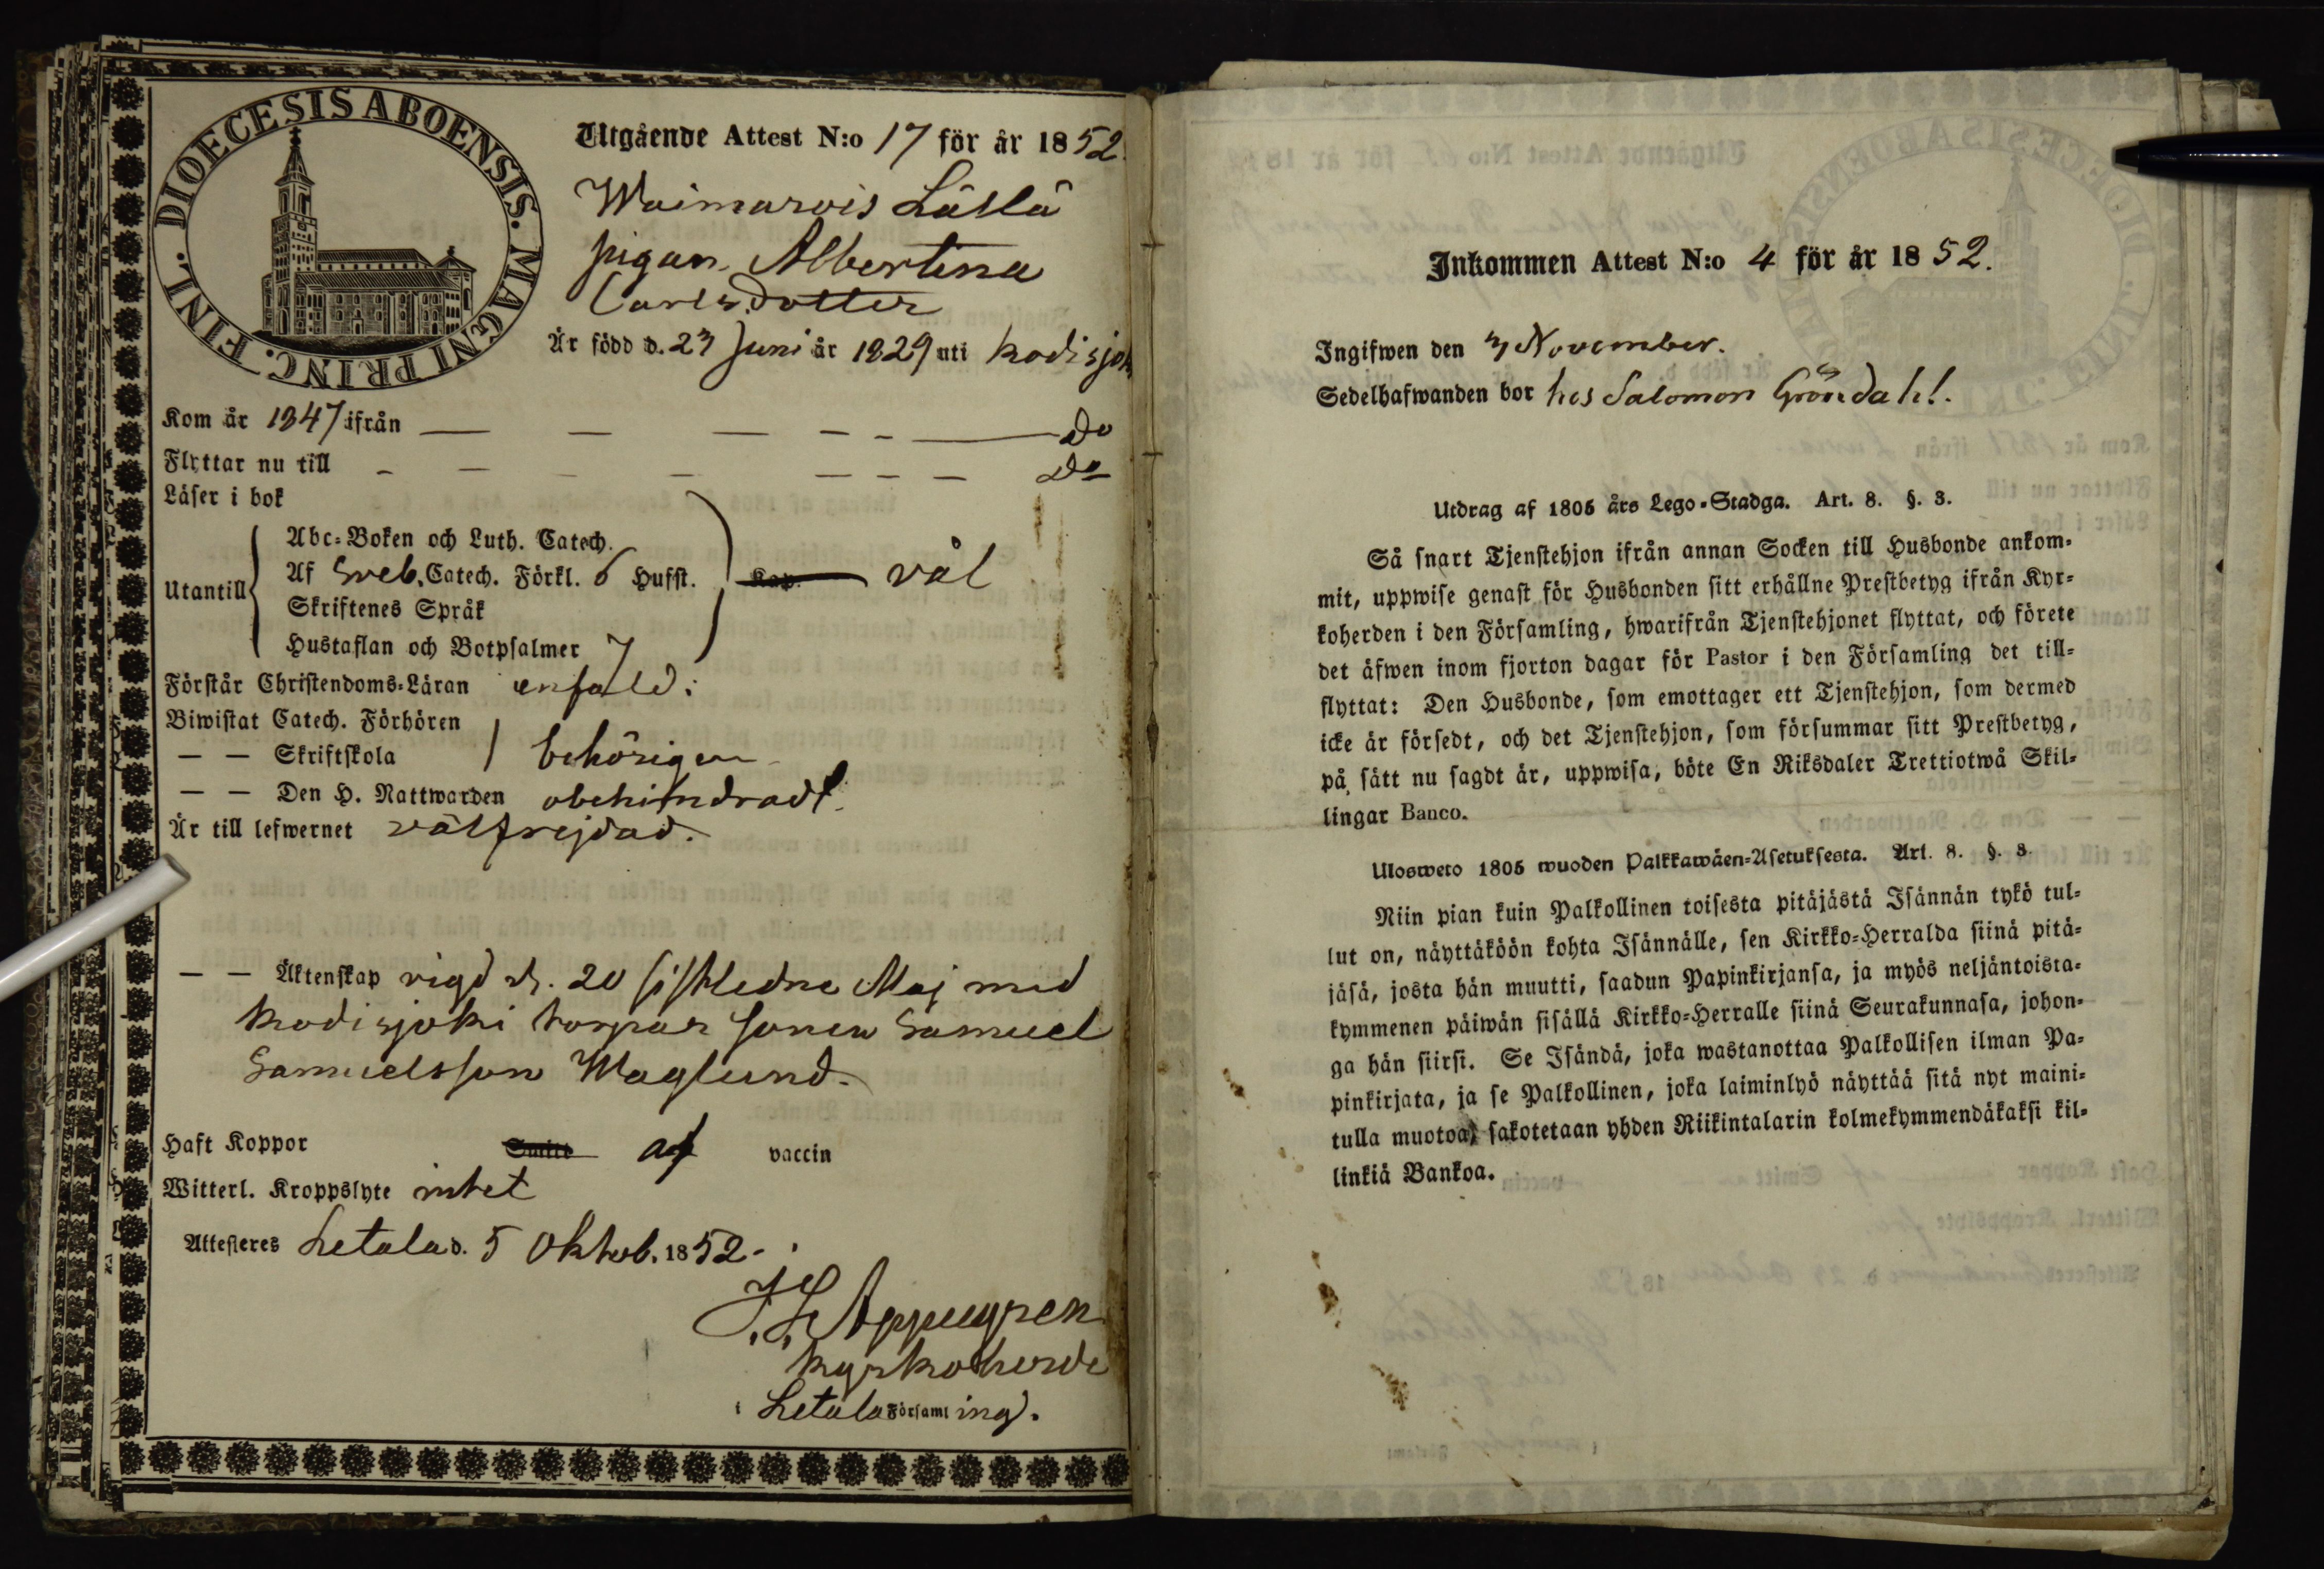 DIOECESIS ABOENSIS. MAGNI PRINC. FINL.
Utgående Attest N:o 17 för år 1852.
Waimarois Lällä
pigan Albertina
Carlsdotter
Är född d. 23 Juni år 1829 uti Kodisjok
Kom år 1847 ifrån — — — — - — Do
Flyttar nu till - — - — — — — Do
Läser i bok
Utantill
Abc-Boken och Luth. Catech.
Af Sveb. Catech. Förkl. 6 Hufst. Kap. väl
Skriftenes Språk
Hustaflan och Botpsalmer 7
Förstår Christendoms-Läran enfald.
Biwistat Catech. Förhören
— — Skriftskola behörigen
— — Den H. Nattwarden obehindradt.
Är till lefwernet välfrejdad.
— — Äktenskap vigd d. 20 sistledne Maj med
Kodisjoki torpar sonen Samuel
Samuelsson Waglund.
Haft Koppor Smitt af vaccin
Witterl. Kroppslyte intet
Attesteres Letala d. 5 Oktob. 1852.
Kyrkoherde
i Letala Församl ing.
Inkommen Attest N:o 4 för år 1852.
Ingifwen den 3 November.
Sedelhafwanden bor hos Salomon Gröndahl.
Utdrag af 1805 års Lego-Stadga. Art. 8. §. 3.
Så snart Tjenstehjon ifrån annan Socken till Husbonde ankom-
mit, uppwise genast för Husbonden sitt erhållne Prestbetyg ifrån Kyr-
koherden i den Församling, hwarifrån Tjenstehjonet flyttat, och förete
det äfwen inom fjorton dagar för Pastor i den Församling det till-
flyttat: Den Husbonde, som emottager ett Tjenstehjon, som dermed
icke är försedt, och det Tjenstehjon, som försummar sitt Prestbetyg,
på sätt nu sagdt är, uppwisa, böte En Riksdaler Trettiotwå Skil-
lingar Banco.
Ulosweto 1805 wuoden Palkkawäen-Asetuksesta. Art. 8. §. 3.
Niin pian kuin Palkollinen toisesta pitäjästä Isännän tykö tul-
lut on, näyttäköön kohta Isännälle, sen Kirkko-Herralda siinä pitä-
jäsä, josta hän muutti, saadun Papinkirjansa, ja myös neljäntoista-
kymmenen päiwän sisällä Kirkko-Herralle siinä Seurakunnasa, johon-
ga hän siirsi. Se Isändä, joka wastanottaa Palkollisen ilman Pa-
pinkirjata, ja se Palkollinen, joka laiminlyö näyttää sitä nyt maini-
tulla muotoa, sakotetaan yhden Riikintalarin kolmekymmendäkaksi kil-
linkiä Bankoa.